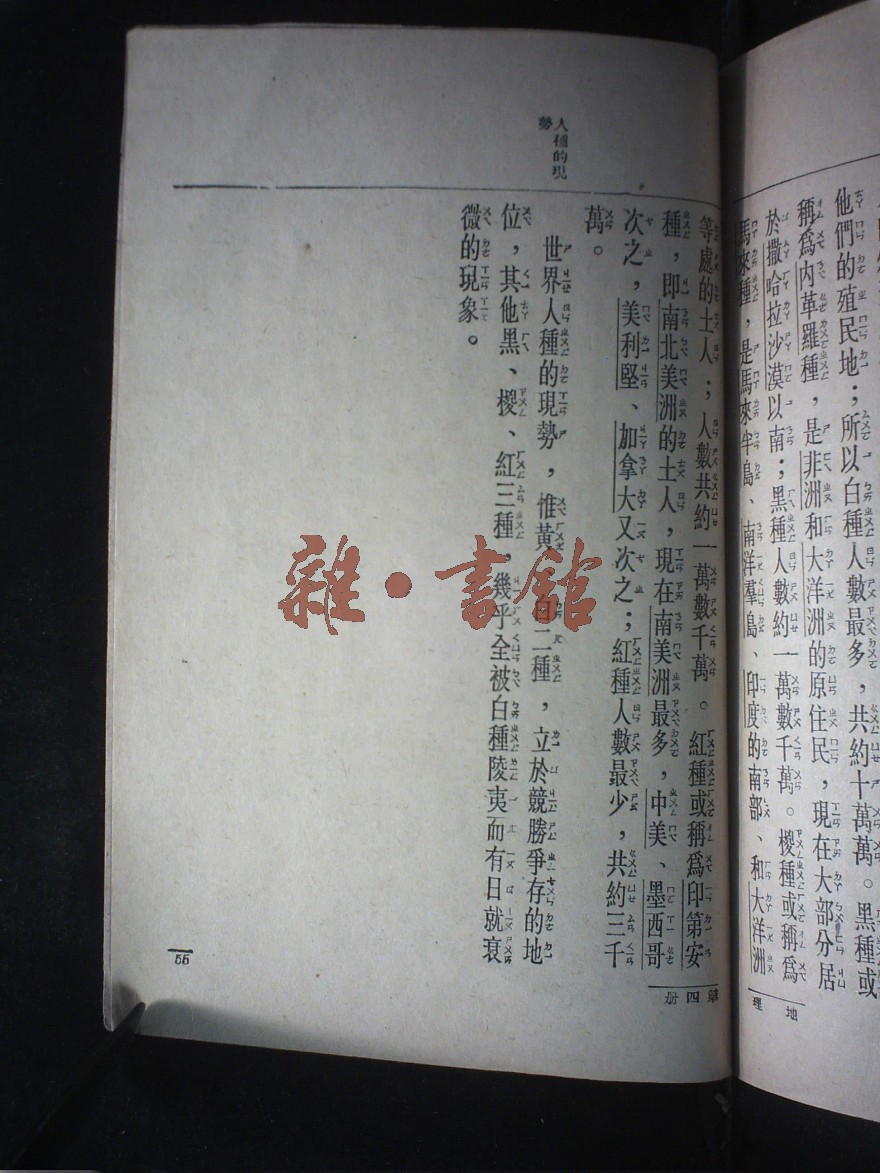 他們的殖民地；所以白種人數最多，共約十萬萬。黑種或
稱爲內革羅種，是非洲和大洋洲的原住民，現在大部分居
於撒哈拉沙漠以南；黑種人數約一萬數千萬。椶種或稱爲
馬來種，是馬來半島、南洋羣島、印度的南部、和大洋洲
地理
第四册
等處的土人；人數共約一萬數千萬。紅種或稱爲印第安
種，即南北美洲的土人，現在南美洲最多，中美、墨西哥
次之，美利堅、加拿大又次之；紅種人數最少，共約三千
萬。
人種的現
勢
世界人種的現勢，惟黃白二種，立於競勝爭存的地
位，其他黑、椶、紅三種，幾乎全被白種陵夷而有日就衰
微的現象。
55
雜·書館